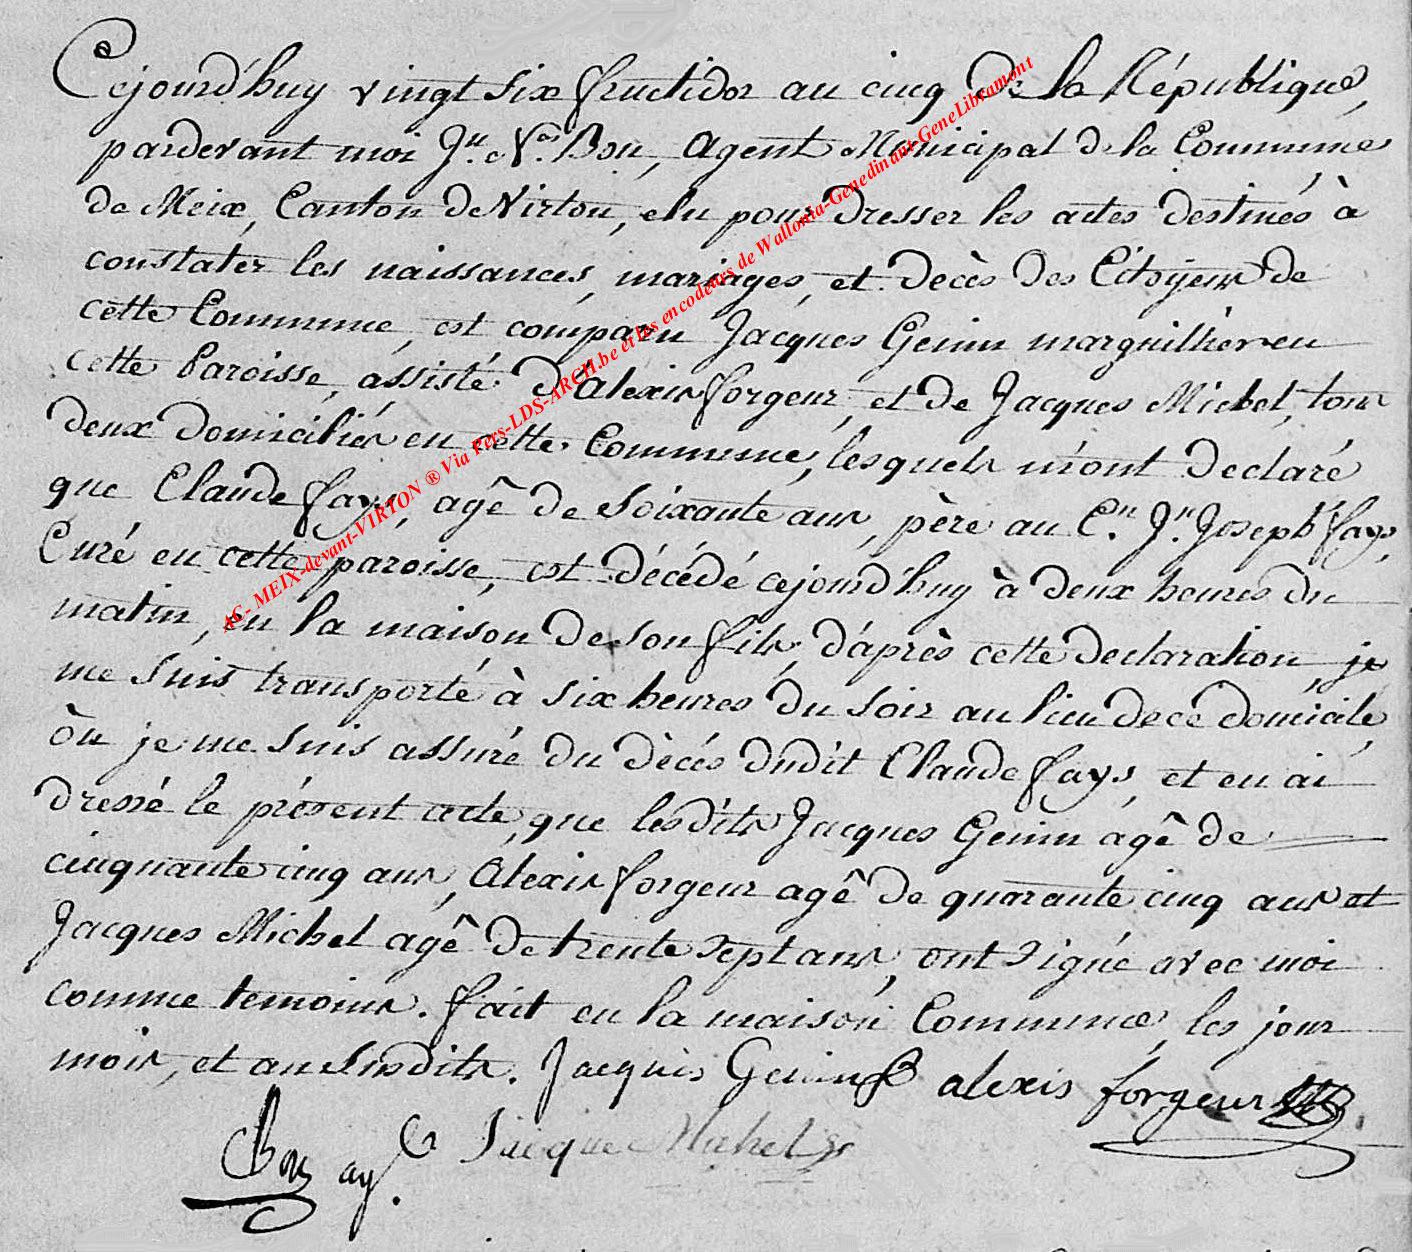 Cejourd'huy vingt six fructidor an cinq de la République,
pardevant moi Jn. Nas. Bon, Agent Municipal de la Commune
de Meix, Canton de Virton, elu pour dresser les actes destinés à
constater les naissances, mariages, et decès des Citoyens de
cette Commune, est comparu Jacques Genin marguillier en
cette Paroisse, assisté d'Alexis forgeur, et de Jacques Michel, tous
deux domiciliés en cette Commune, lesquels m'ont declaré
que Claude fays, agê de soixante ans, père au Cn. Jn. Joseph fays,
Curé en cette paroisse, est décédé cejourd'huy à deux heures du
matin, en la maison de son fils, d'après cette declaration, je
me suis transporté à six heures du soir au lieu de ce domicile,
òu je me suis assuré du dècés dudit Claude fays, et en ai
dressé le présent acte, que lesdits Jacques Genin agê de
cinquante cinq ans, Alexis forgeur agê de quarante cinq ans et
Jacques Michel agê de trente sept ans, ont signé avec moi
comme temoins. fait en la maison Commune, les jour
mois, et an susdits. Jacquis Genin alexis forgeur
Bon ag. Jacque Michel
AC- MEIX-devant-VIRTON ® Via Pers-LDS-ARCH.be et les encodeurs de Wallonia-Genedinant-GeneLibramont